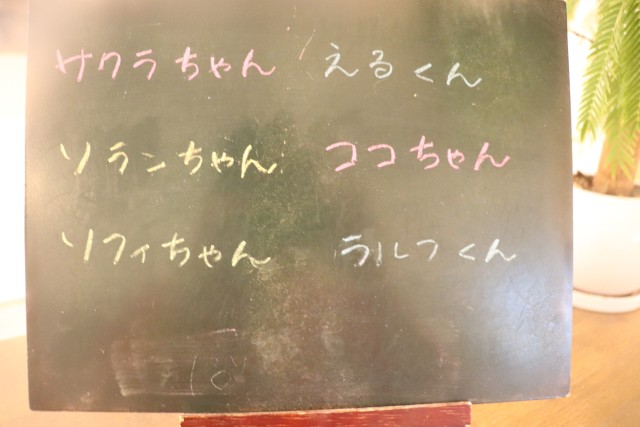 サクラちゃん えるくん
ソランちゃん ココちゃん
ソフィちゃん ラルフくん